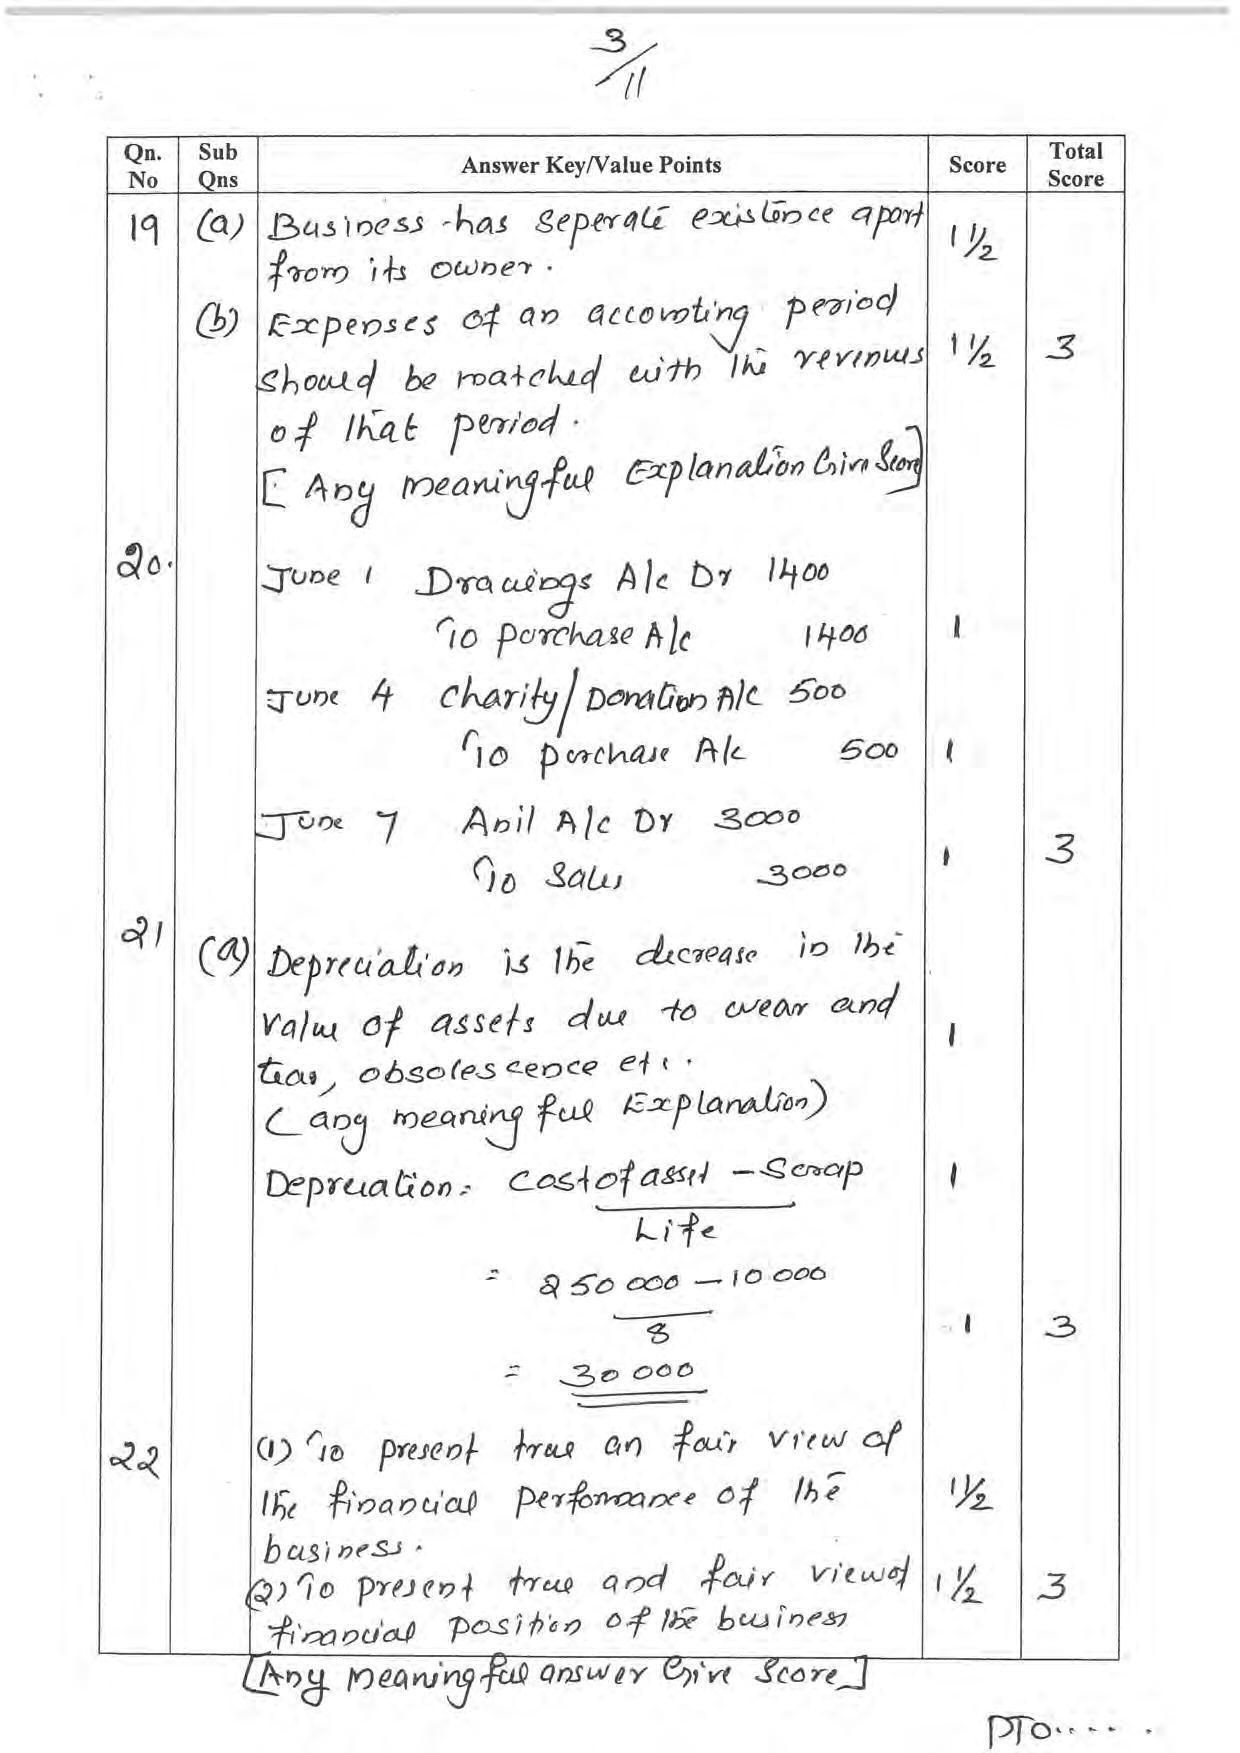 3/11
Qn. No Sub Qns Answer Key/Value Points Score Total Score
19 (a) Business has seperate existence apart 1 1/2
from its owner.
(b) Expenses of an accounting period
should be matched with the revenues 1 1/2 3
of that period.
[Any meaningful Explanation Give Score]
20.
June 1 Drawings A/c Dr 1400
To purchase A/c 1400 1
June 4 charity/Donation A/c 500
To purchase A/c 500 1
June 7 Anil A/c Dr 3000
To Sales 3000 1 3
21 (a) Depreciation is the decrease in the
value of assets due to wear and 1
tear, obsolescence etc.
(any meaningful Explanation)
Depreciation = cost of asset - Scrap 1
Life
= 250000 - 10000
8 1 3
= 30000
22 (1) To present true an fair view of
the financial performance of the 1 1/2
business.
(2) To present true and fair view of 1 1/2 3
financial position of the business
[Any meaningful answer Give Score]
PTO......